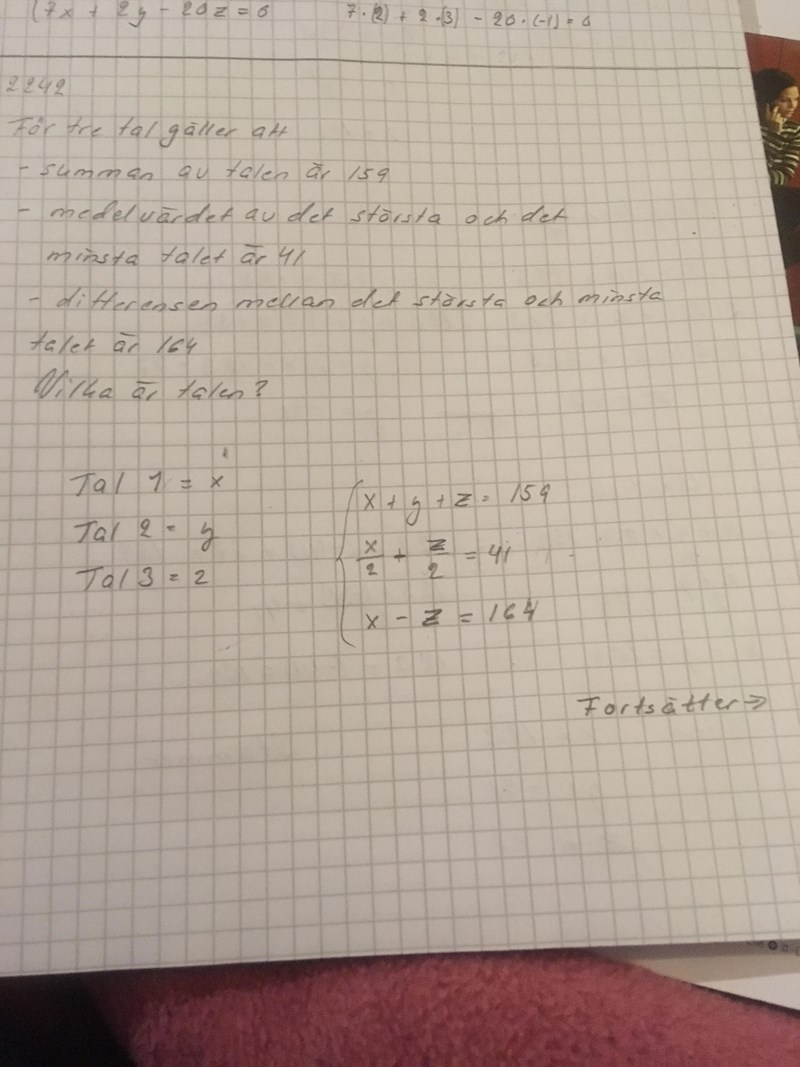 7x + 2y - 20z = 0
7·(2) + 2·(3) - 20·(-1) = 0
2242
För tre tal gäller att
- summan av talen är 159
- medelvärdet av det största och det
minsta talet är 41
- differensen mellan det största och minsta
talet är 164
Vilka är talen?
Tal 1 = x
Tal 2 = y
Tal 3 = z
x + y + z = 159
x/2 + z/2 = 41
x - z = 164
Fortsätter ⇒